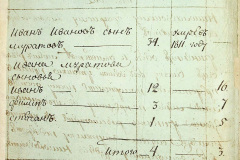 Иванъ Ивановъ сынъ умре въ
Муратовъ 34. 1811 году
Ивана Муратова
сыновья
Иванъ 12 16
Филипъ 3 7
Степанъ 1 5
Итого 4 3.